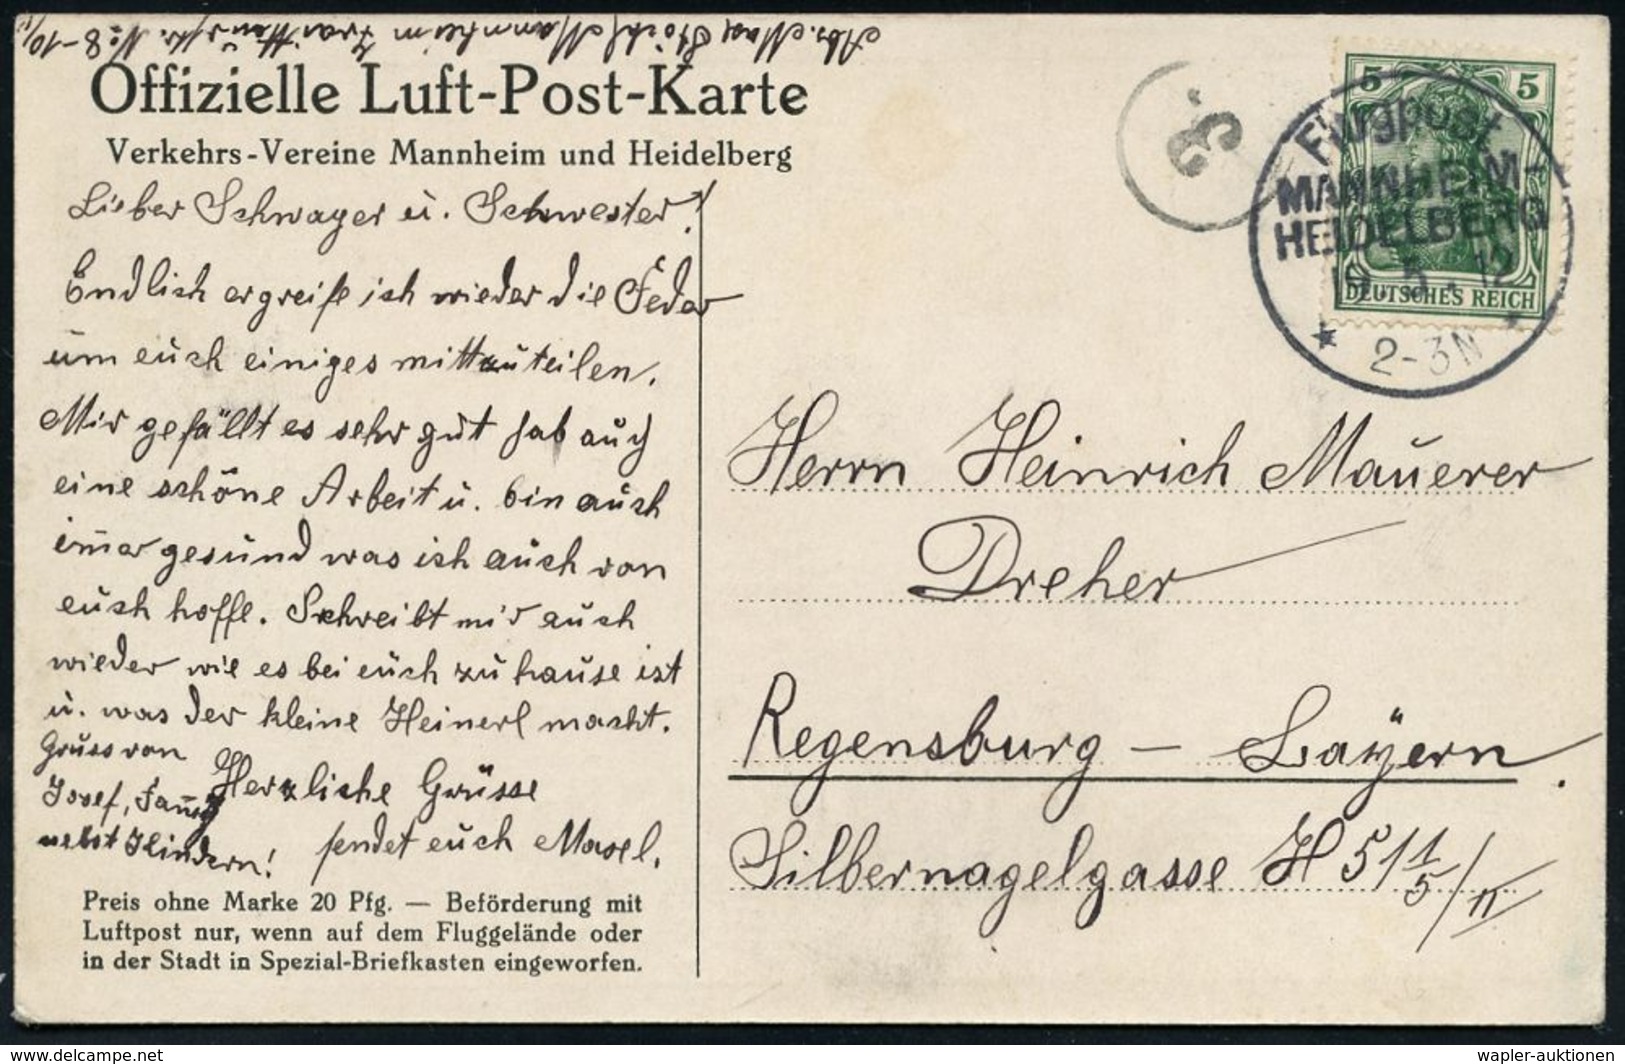 Abs. Max Stöckl Mannheim Traitteurstr. No: 8-10
Offizielle Luft-Post-Karte
Verkehrs-Vereine Mannheim und Heidelberg
Lieber Schwager u. Schwester!
Endlich ergreife ich wieder die Feder
um euch einiges mitzuteilen.
Mir gefällt es sehr gut hab auch
eine schöne Arbeit u. bin auch
im̅er gesund was ich auch von
euch hoffe. Schreibt mir auch
wieder wie es bei euch zu hause ist
u. was der kleine Heinerl macht.
Gruss von
Josef, Fanny
nebst Kindern!
Herzliche Grüsse
sendet euch Maxl.
Preis ohne Marke 20 Pfg. — Beförderung mit
Luftpost nur, wenn auf dem Fluggelände oder
in der Stadt in Spezial-Briefkasten eingeworfen.
3.
5 5
DEUTSCHES REICH
Flugpost
MANNHEIM-
HEIDELBERG
2-3N
Herrn Heinrich Mauerer
Dreher
Regensburg — Bayern.
Silbernagelgasse H 51 1/5/II
wapler-auktionen
www.delcampe.net